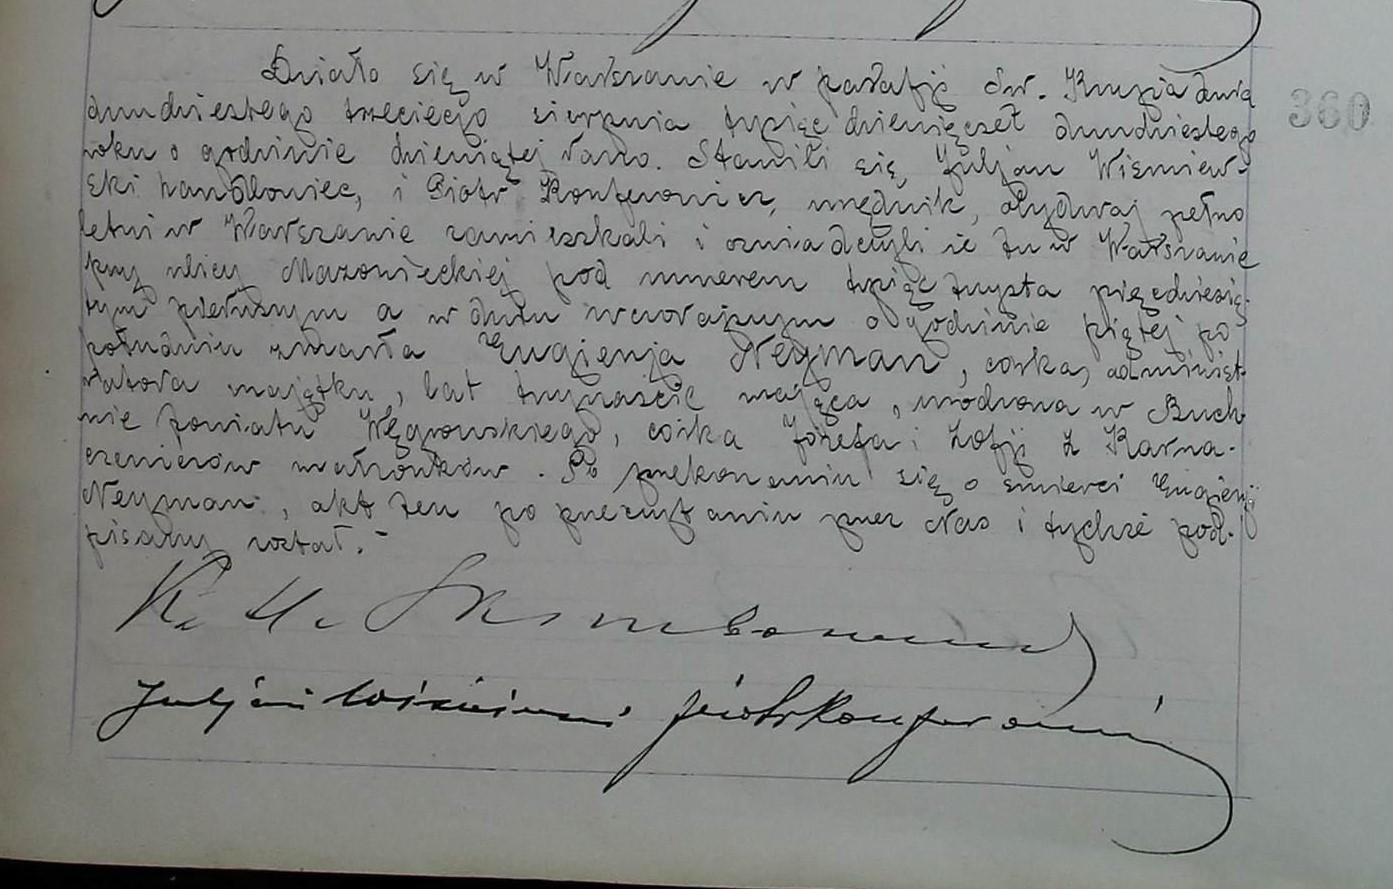 Działo się w Warszawie w parafji Św. Krzyża dnia
dwudziestego trzeciego sierpnia tysiąc dziewięćset dwudziestego
roku o godzinie dziewiątej rano. Stawili się, Juljan Wiśniew-
ski handlowiec, i Piotr Konferowicz, urzędnik, obydwaj pełno
letni w Warszawie zamieszkali i oświadczyli że tu w Warszawie
przy ulicy Mazowieckiej pod numerem tysiąc trzysta pięćdziesią-
tym pierwszym a w dniu wczorajszym o godzinie piątej po
południu zmarła Eugienja Neyman, córka, administ-
ratora majątku, lat trzynaście mająca, urodzona w Buch
nie powiatu Węgrowskiego, córka Józefa i Zofji z Karna-
czewiczów małżonków. Po przekonaniu się o śmierci Eugienji
Neyman, akt ten po przeczytaniu przez Nas i tychże pod-
pisany został.-
Juljan Wiśniewski Piotr Konferowicz
360